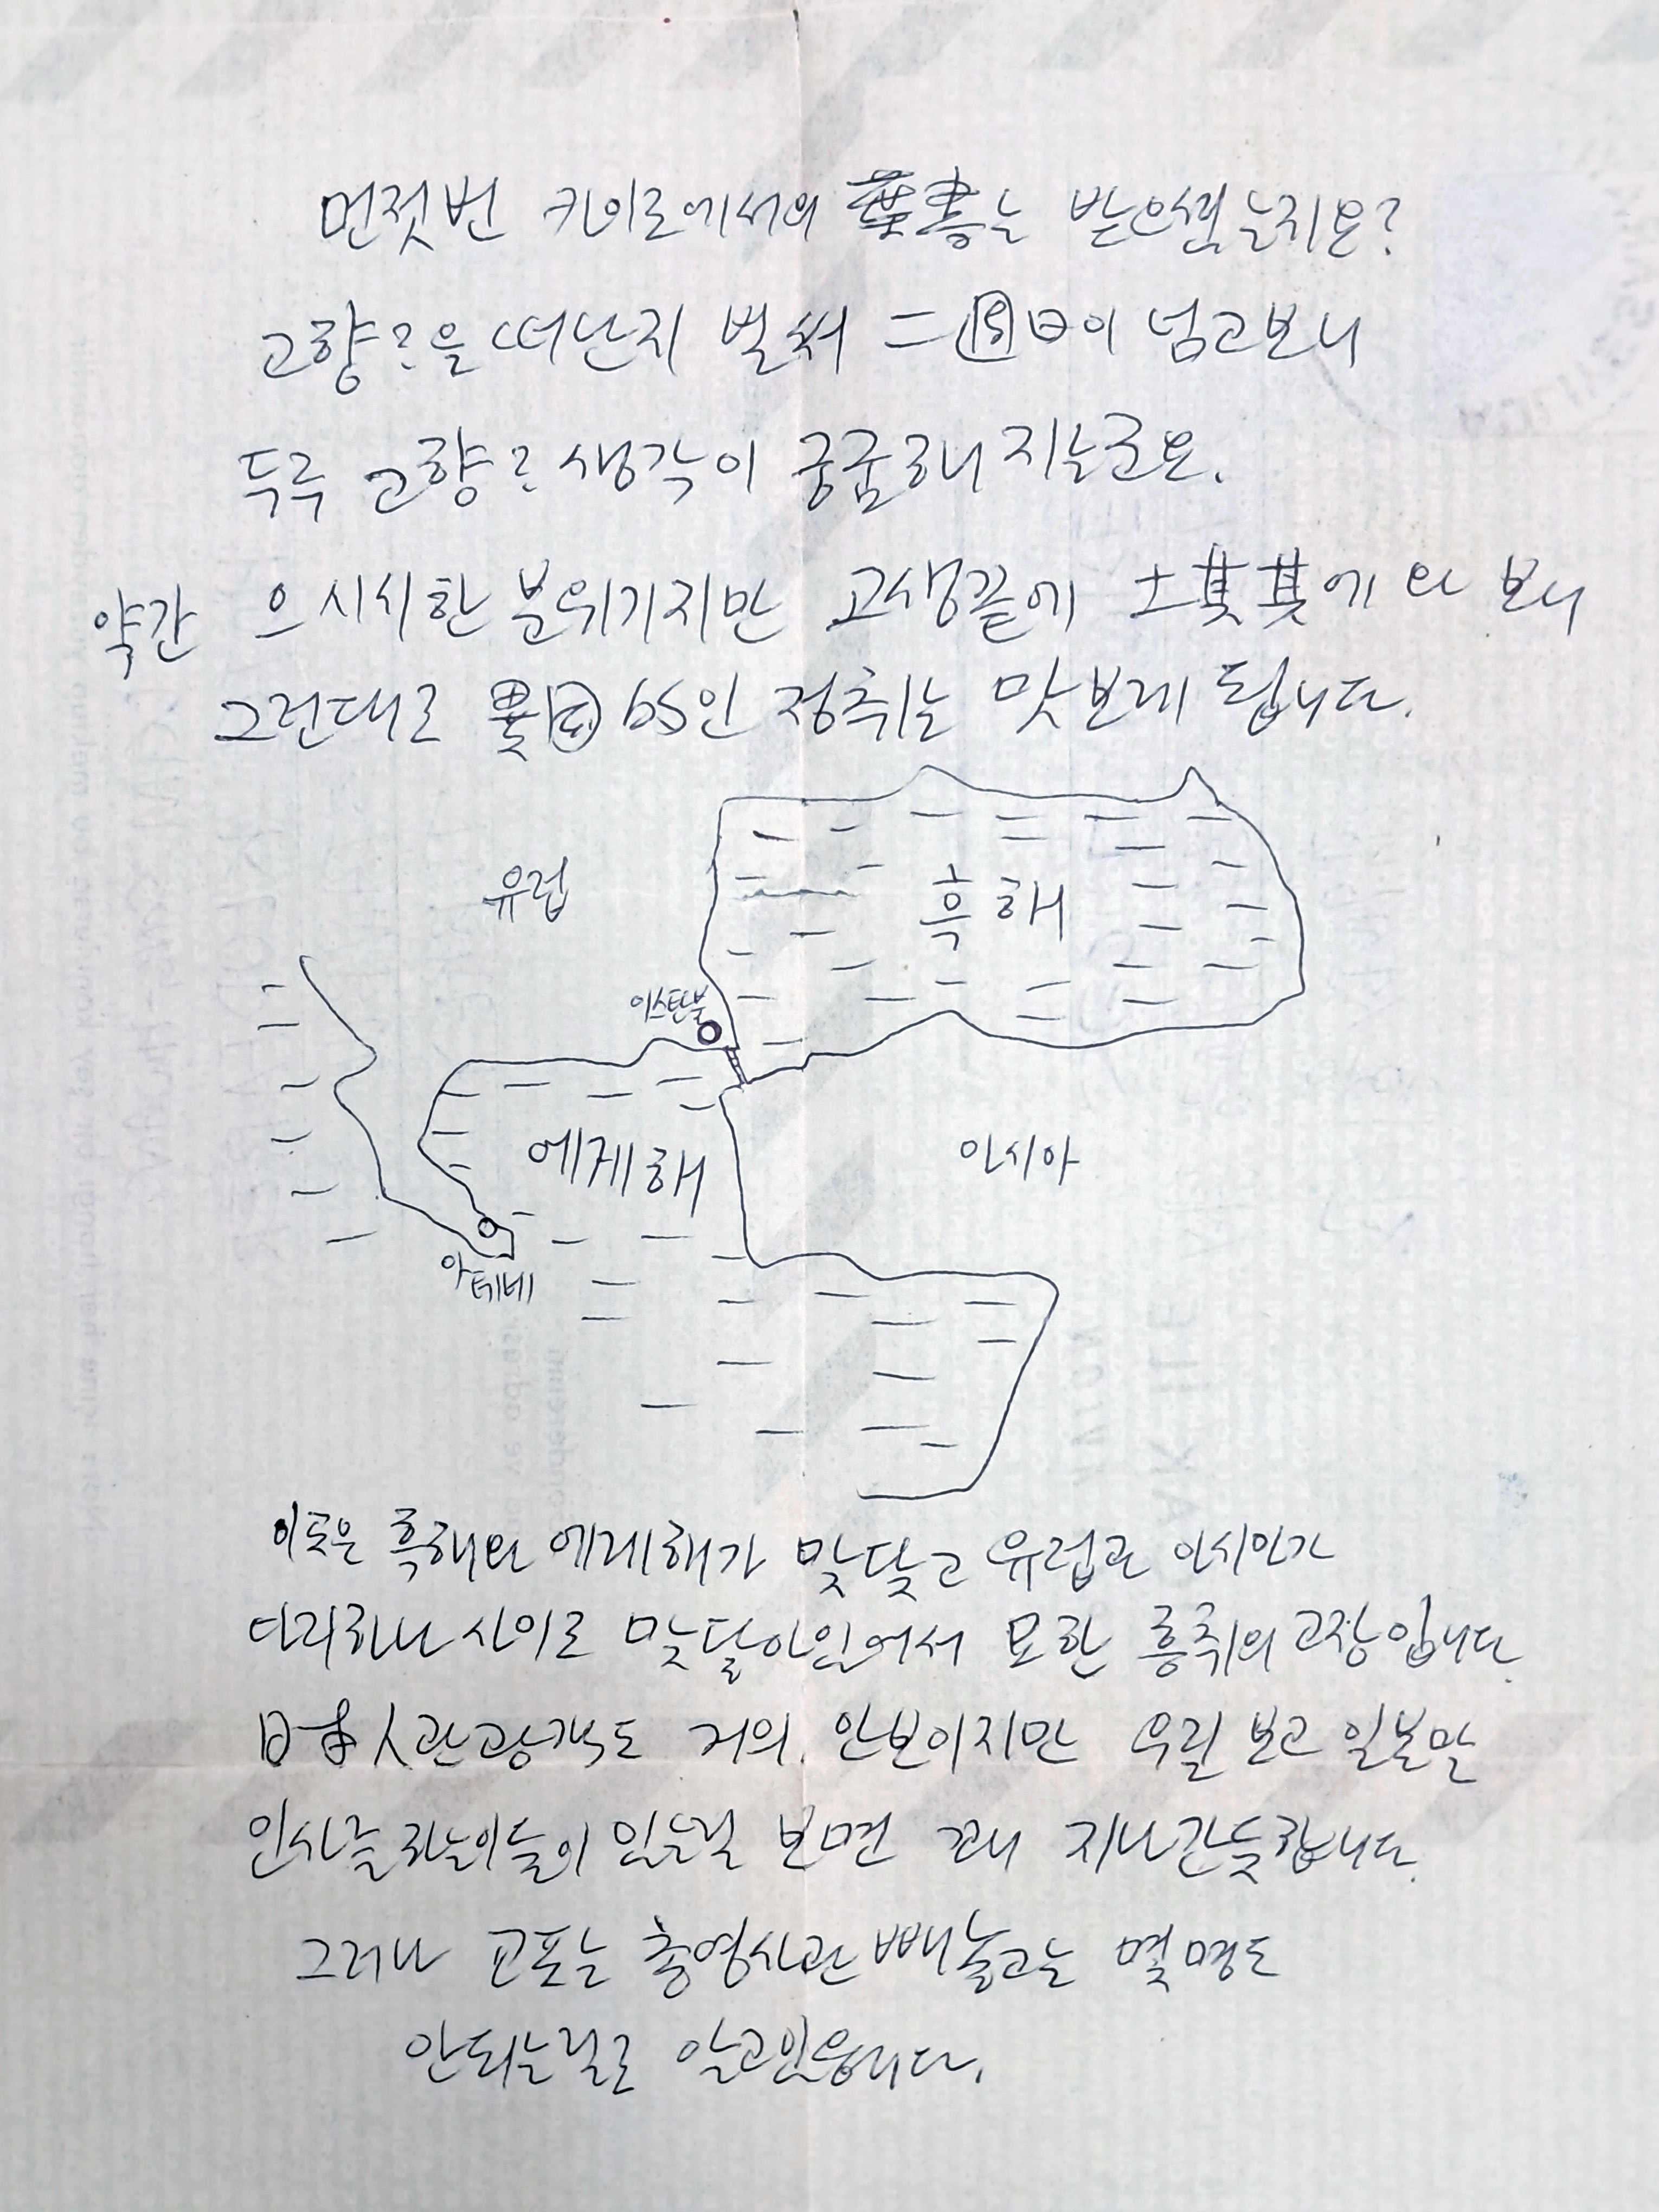 먼젓번 카이로에서의 葉書는 받으셨는지요?
고향?을 떠난지 벌써 二週日이 넘고보니
두루 고향? 생각이 궁굼해 지는군요.
약간 으시시한 분위기지만 고생끝에 土其其에 와 보니
그런대로 異国的인 정취는 맛보게 됩니다.
유럽
흑해
이스탄불
에게해
아시아
아테네
이곳은 흑해와 에게해가 맞닿고 유럽과 아시아가
다리하나 사이로 맞닿아있어서 묘한 흥취의 고장입니다.
日本人관광객도 거의 안보이지만 우릴 보고 일본말
인사를 하는이들이 있는걸 보면 꽤 지나간듯합니다.
그러나 교포는 총영사관 빼놓고는 몇명도
안되는걸로 알고있읍니다.